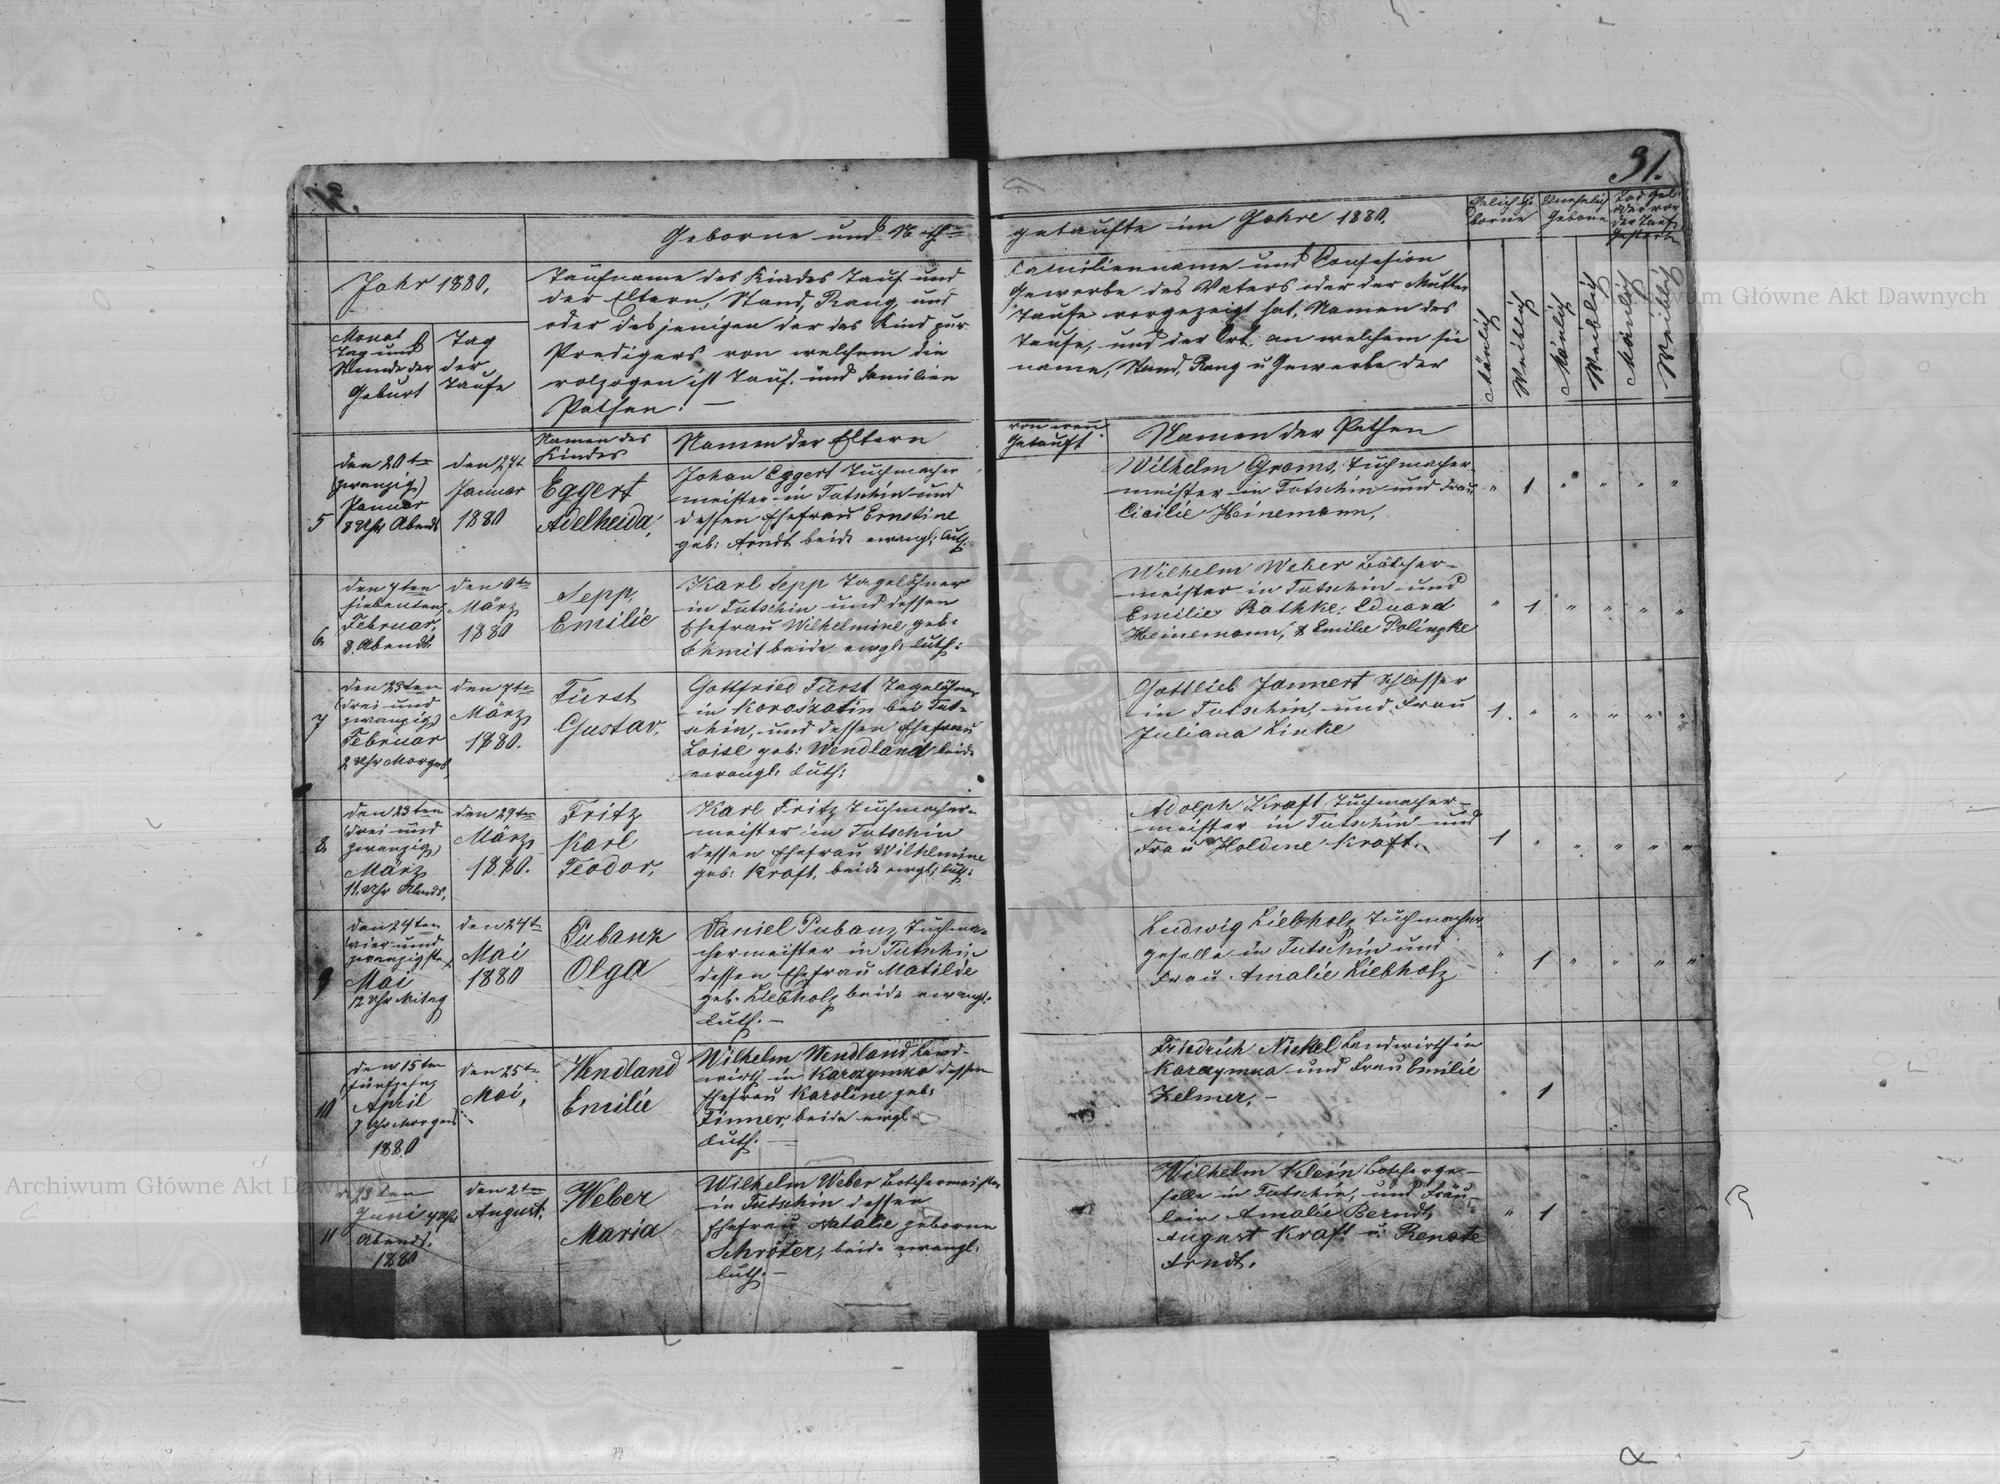 31.
Geborne und Noth=
getaufte im Jahre 1880.
Jahr 1880.
Monat
Tag und
Stunde der
Geburt
Tag
der
Taufe
Taufname des Kindes Tauf und
der Eltern, Stand, Rang, und
oder desjenigen der das Kind zur
Predigers von welchem die
volzogen ist Tauf. und Familien
Pathen. —
Familienname und Confesion
Gewerbe des Vaters oder der Mutter
Taufe vorgezeigt hat. Namen des
Taufe, und der Ort. an welchem sie
name, Stand, Rang u Gewerbe der
Ehelich Ge
borne
Unehelich
Geborne
Tod Geb.
oder vor
der Taufe
Gestorbe
Mänlich
Weiblich
Mänlich
Weiblich
Mänlich
Weiblich
Namen des
Kindes
Namen der Eltern
von wem
Getauft
Namen der Pathen
5
den 20te
(zwanzig)
Januar
8 Uhr Abends
den 27t
Januar
1880
Eggert
Adelheida,
Johan Eggert Tuchmacher
meister in Tutschin und
dessen Ehefrau Ernstine
geb: Arndt beide evangl: luth:
Wilhelm Grams, Tuchmacher-
meister in Tutschin und Frau
Cicilie Heinemann,
" 1 " " " "
6
den 7ten
siebenten
Februar
8. Abends
den 6te
März
1880
Sepp,
Emilie
Karl Sepp Tagelöhner
in Tutschin und dessen
Ehefrau Wilhelmine geb.
Schmit beide evgl: luth:
Wilhelm Weber Bötcher-
meister in Tutschin und
Emilie Rathke. Eduard
Heinemann, & Emilie Polinzke
" 1 " " " "
7
den 23ten
(drei und
zwanzig)
Februar
2 Uhr Morgens,
den 7te
März
1880.
Fürst
Gustav.
Gottfried Fürst Tagelöhner
in Koroszatin bei Tut-
schin, und dessen Ehefrau
Loise geb: Wendland beide
evangl. luth:
Gottlieb Jannert Schlosser
in Tutschin, und Frau
Juliana Linke
1. " " " " "
8
den 23ten
(drei und
zwanzig)
März
11. Uhr Abends,
den 29te
März
1880.
Fritz
Karl
Teodor,
Karl Fritz Tuchmacher-
meister in Tutschin
dessen Ehefrau Wilhelmine
geb: Kraft, beide evgl: luth:
Adolph Kraft Tuchmacher-
meister in Tutschin und
Frau Holdine Kraft.
1 " " " " "
9
den 24ten
(vier und
zwanzigste)
Mai
12 Uhr Mitag
den 24te
Mai
1880
Pubanz
Olga
Daniel Pubanz Tuchma-
chermeister in Tutschin
dessen Ehefrau Matilde
geb. Liebholz beide evangl.
luth. —
Ludwig Liebholz Tuchmacher
geselle in Tutschin und
Frau Amalie Liebholz
" 1 " " " "
10
den 15ten
(fünfzehn
April
7 Uhr Morgens
1880
den 25te
Mai,
Wendland
Emilie
Wilhelm Wendland Land-
wirth in Karczymka dessen
Ehefrau Karoline geb:
Finner, beide evgl
luth. —
Friedrich Nickel Landwirth in
Karczymka und Frau Emilie
Zelmer, —
" 1
11
Juni
Abends.
1880
den 2te
August.
Weber
Maria
Wilhelm Weber Botchermeister
in Tutschin dessen
Ehefrau Natalie geborne
Schröter, beide evangl.
luth. —
Wilhelm Klein Botcherge-
selle in Tutschin, und Fräu-
lein Amalie Berndt,
August Kraft u. Renate
Arndt.
" 1 " " " "
Archiwum Główne Akt Dawnych
Archiwum Główne Akt Dawnych